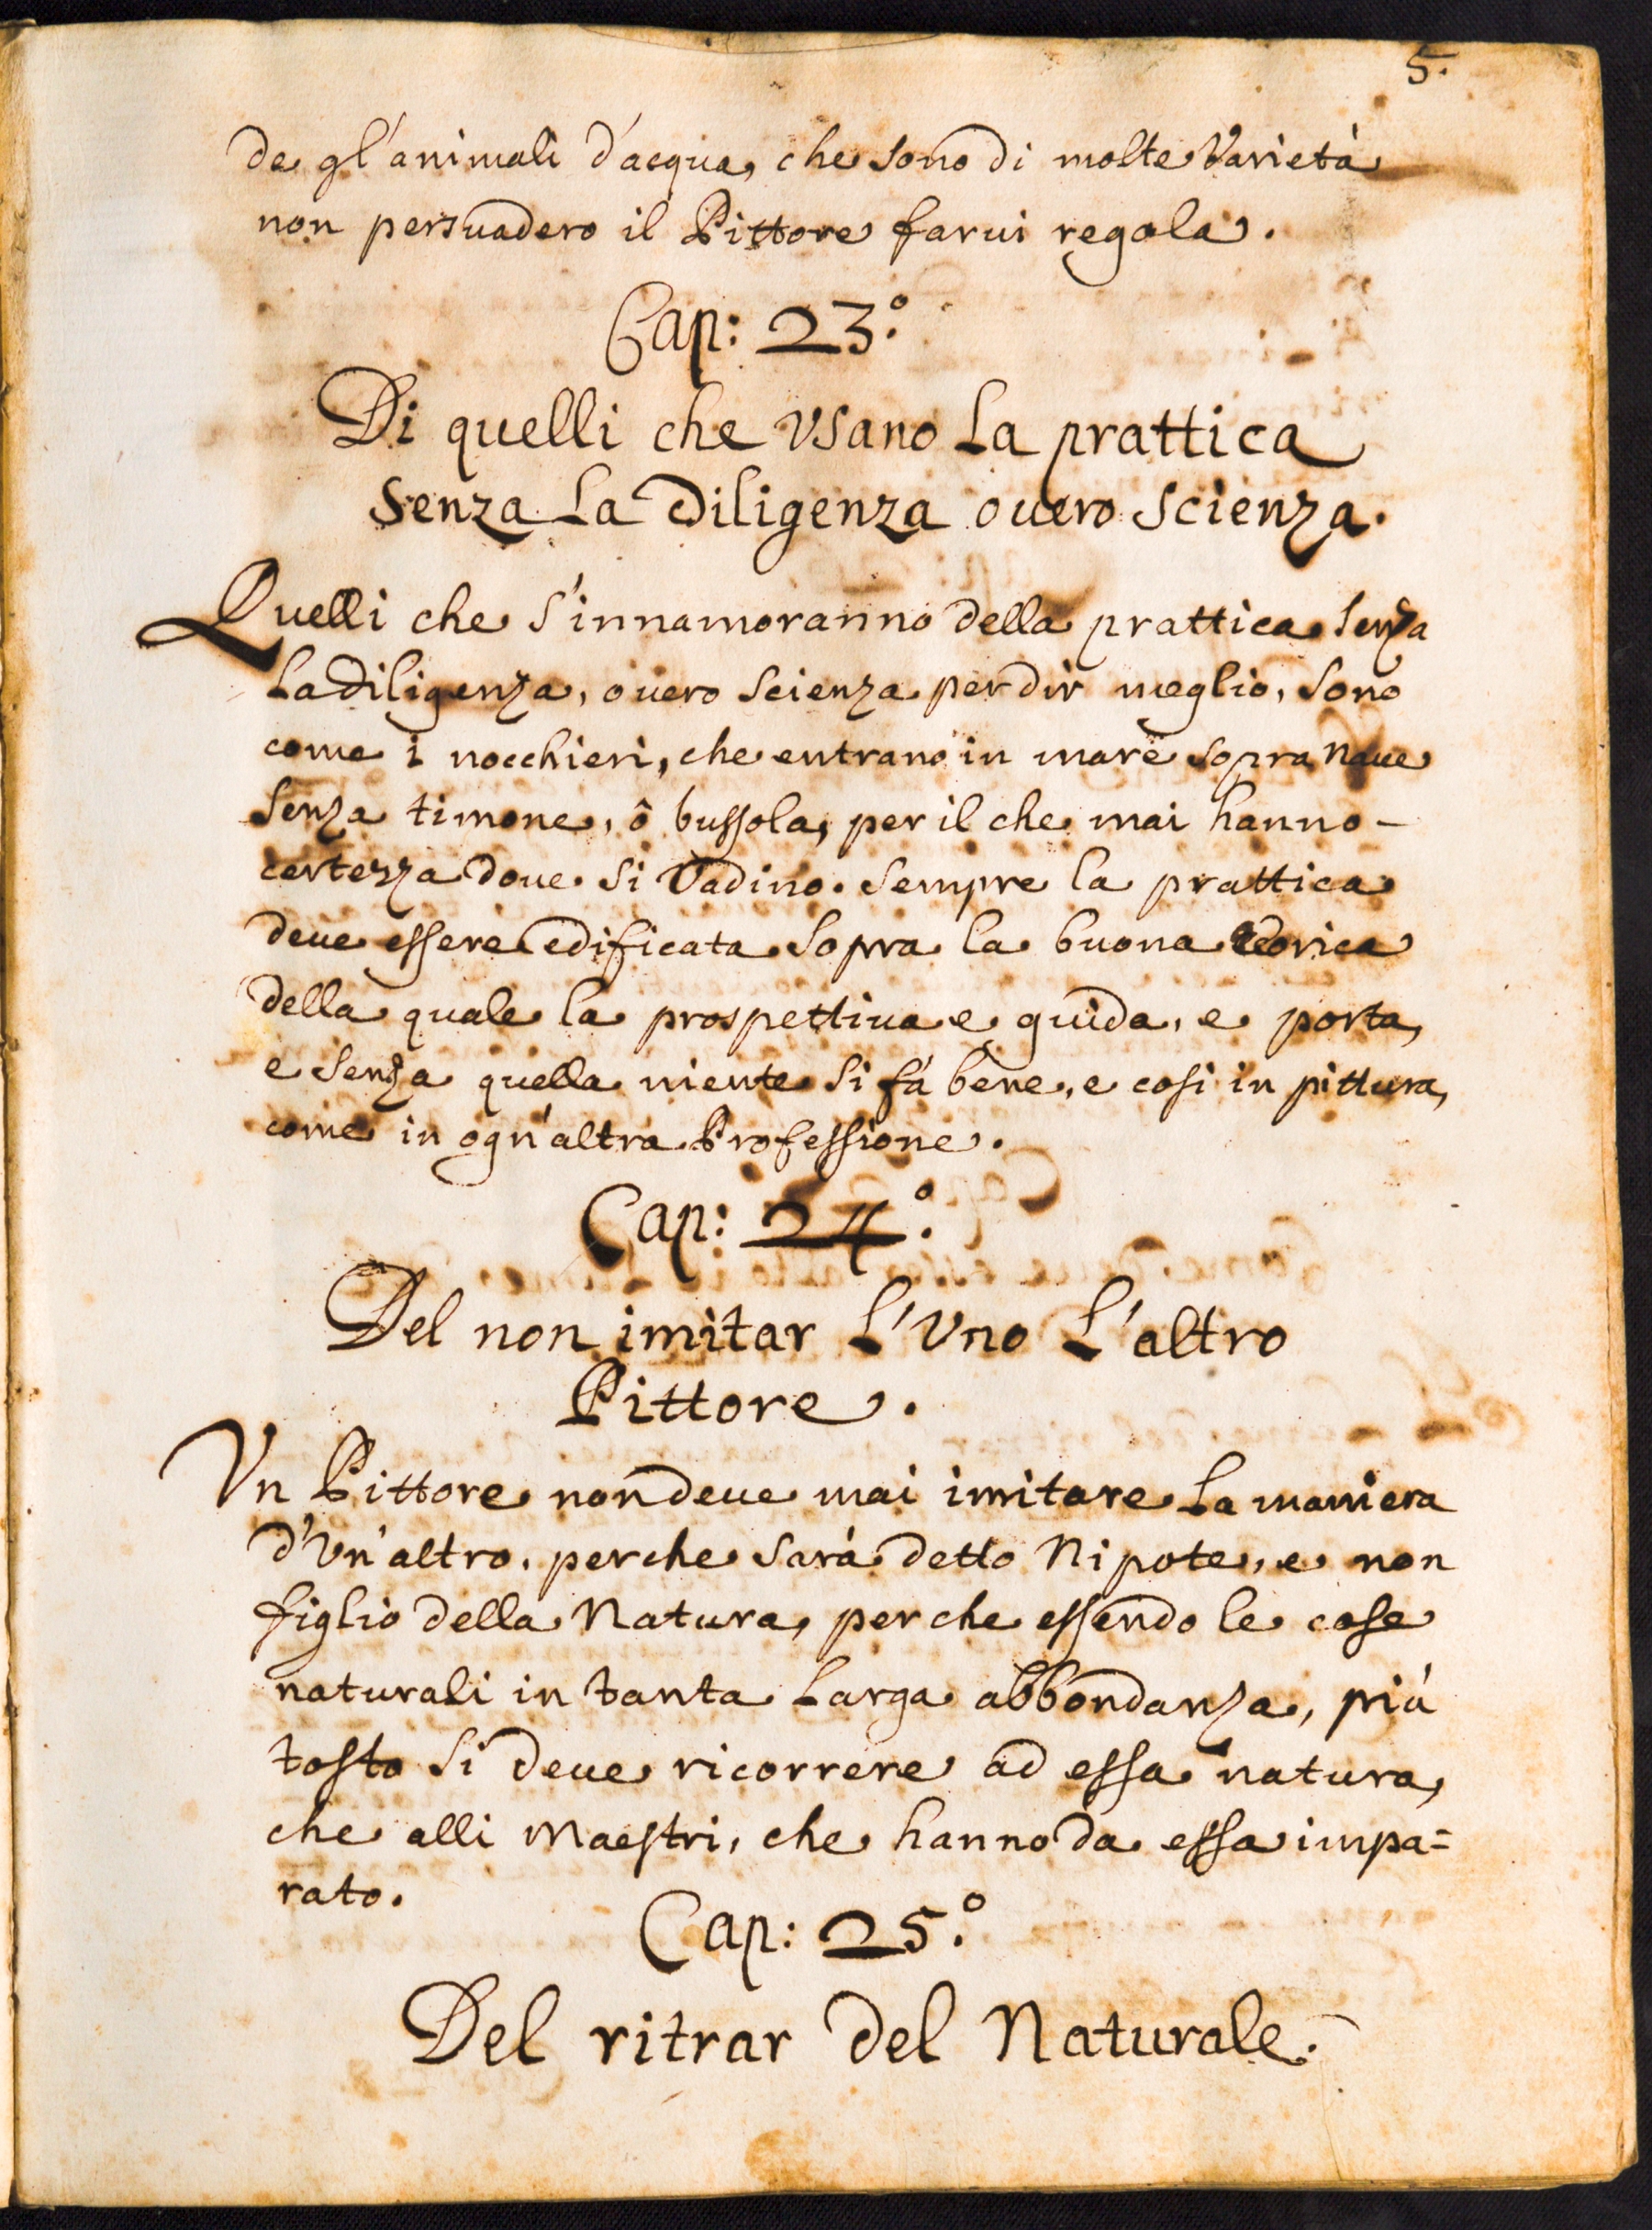 5.
de gl'animali d'acqua, che sono di molte Varietà
non persuadero il Pittore farui regola.
Cap: 23.°
Di quelli che Vsano la prattica
senza la diligenza ouero scienza.
Quelli che s'innamoranno della prattica senza
la diligenza, ouero scienza per dir meglio, sono
come i nocchieri, che entrano in mare sopra Naue
senza timone, ô bussola, per il che mai hanno -
certezza doue si Vadino. sempre la prattica
deue essere edificata sopra la buona teorica
della quale la prospettiua e guida, e porta,
e senza quella niente si fá bene, e cosi in pittura,
come in ogn'altra Professione.
Cap: 24.°
Del non imitar L'Vno L'altro
Pittore.
Vn Pittore non deue mai imitare la maniera
d'Vn'altro, perche sará detto Nipote, e non
figlio della Natura, perche essendo le cose
naturali in tanta larga abbondanza, piú
tosto si deue ricorrere ad essa natura,
che alli Maestri, che hanno da essa impa=
rato.
Cap: 25.°
Del ritrar del Naturale.